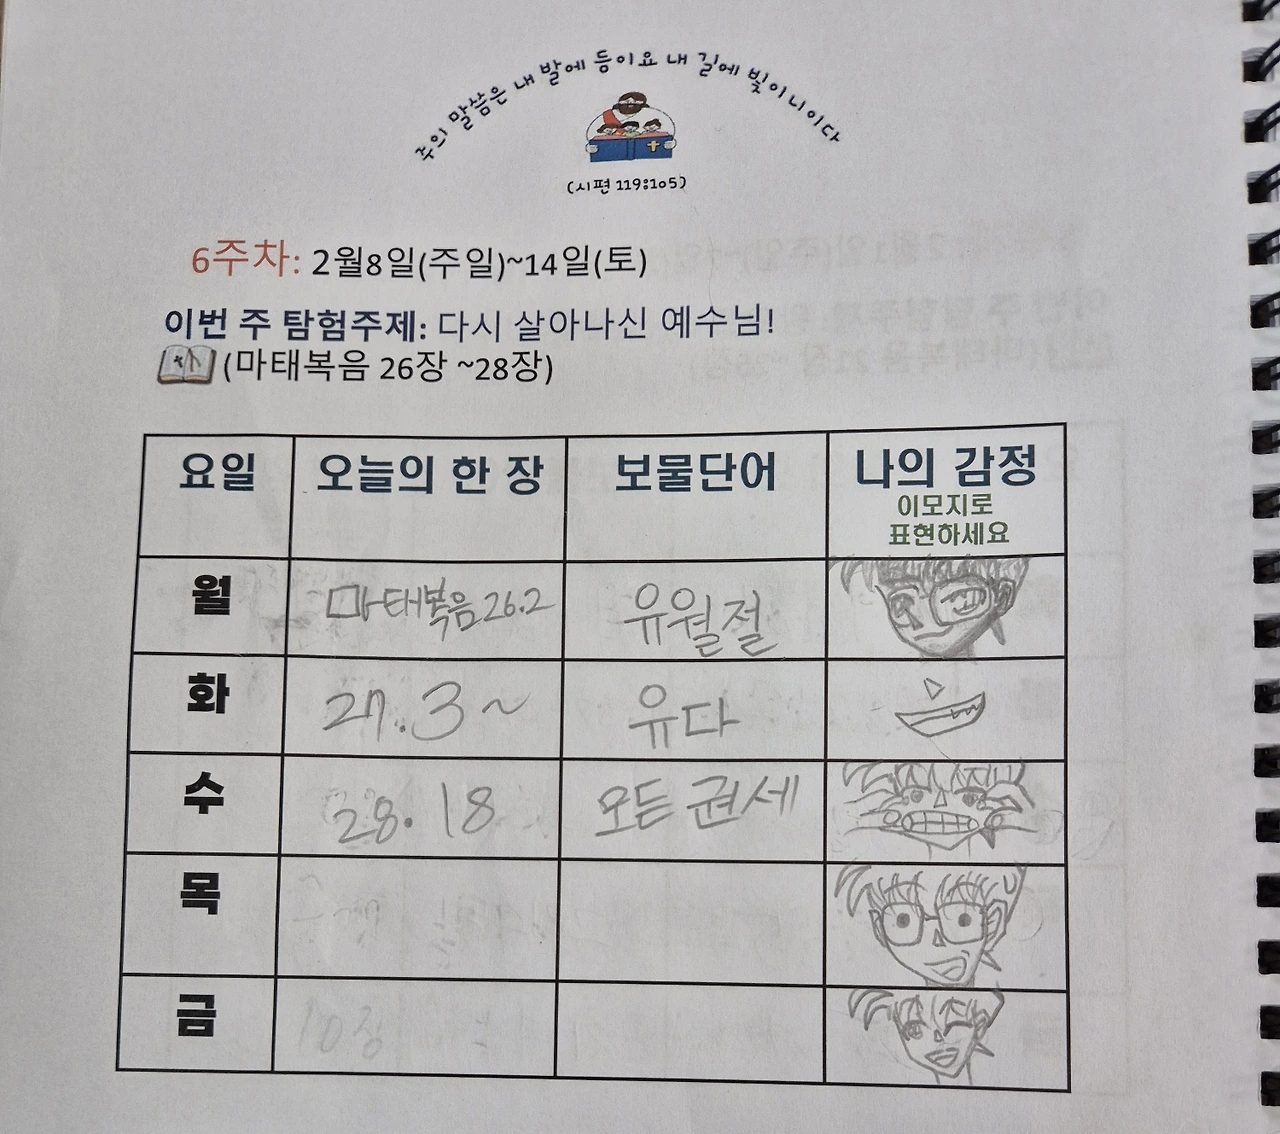 주의 말씀은 내 발에 등이요 내 길에 빛이니이다
(시편 119:105)
6주차: 2월8일(주일)~14일(토)
이번 주 탐험주제: 다시 살아나신 예수님!
(마태복음 26장 ~28장)
요일 오늘의 한 장 보물단어 나의 감정
이모지로
표현하세요
월 마태복음 26.2 유월절
화 27.3~ 유다
수 28.18 모든 권세
목
금